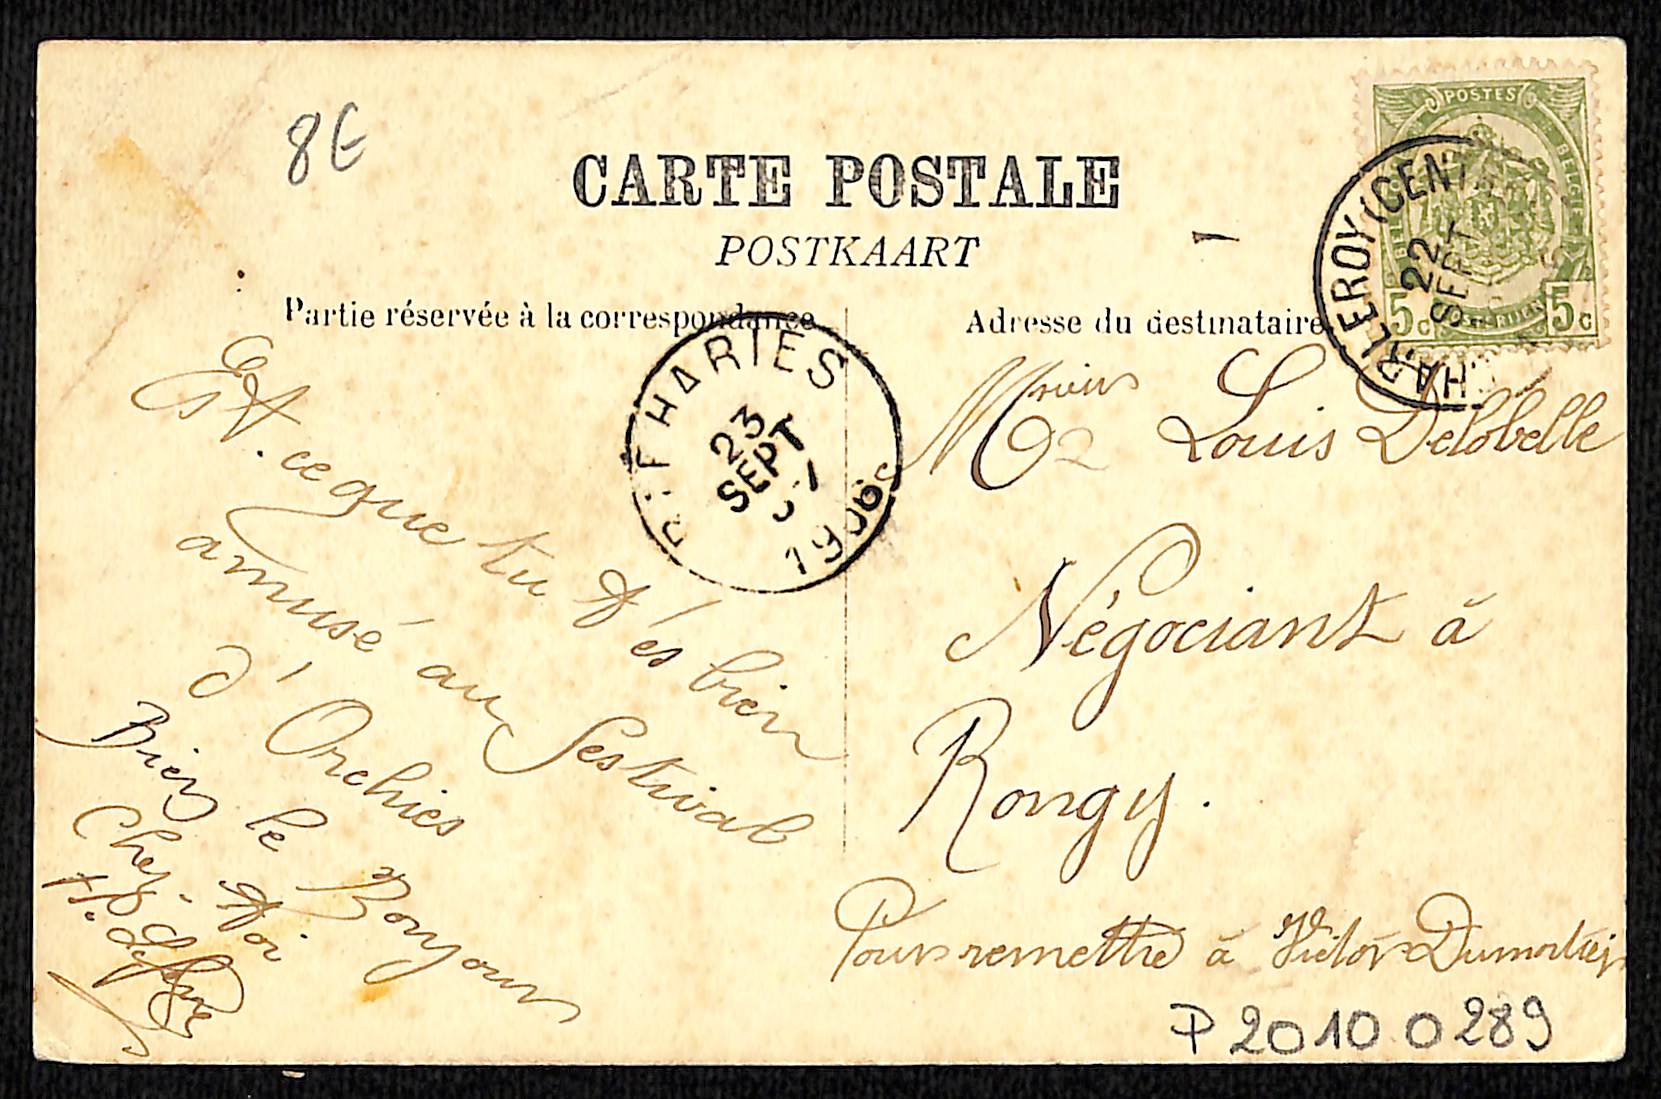 8E
CARTE POSTALE
POSTKAART
Partie réservée à la correspondance
Adresse du destinataire
POSTES
BELGIQUE
5c 5c
CHARLEROY (CENTRE)
22
SEPT
CHARIES
23
SEPT
1906
Est-ce que tu t'és bien
amusé au festival
d'Orchies
Bien le Bonjour
Chez toi
Louis Delobelle
Négociant à
Rongy.
Pour remettre à Victor Dumortier
P 2010 0289